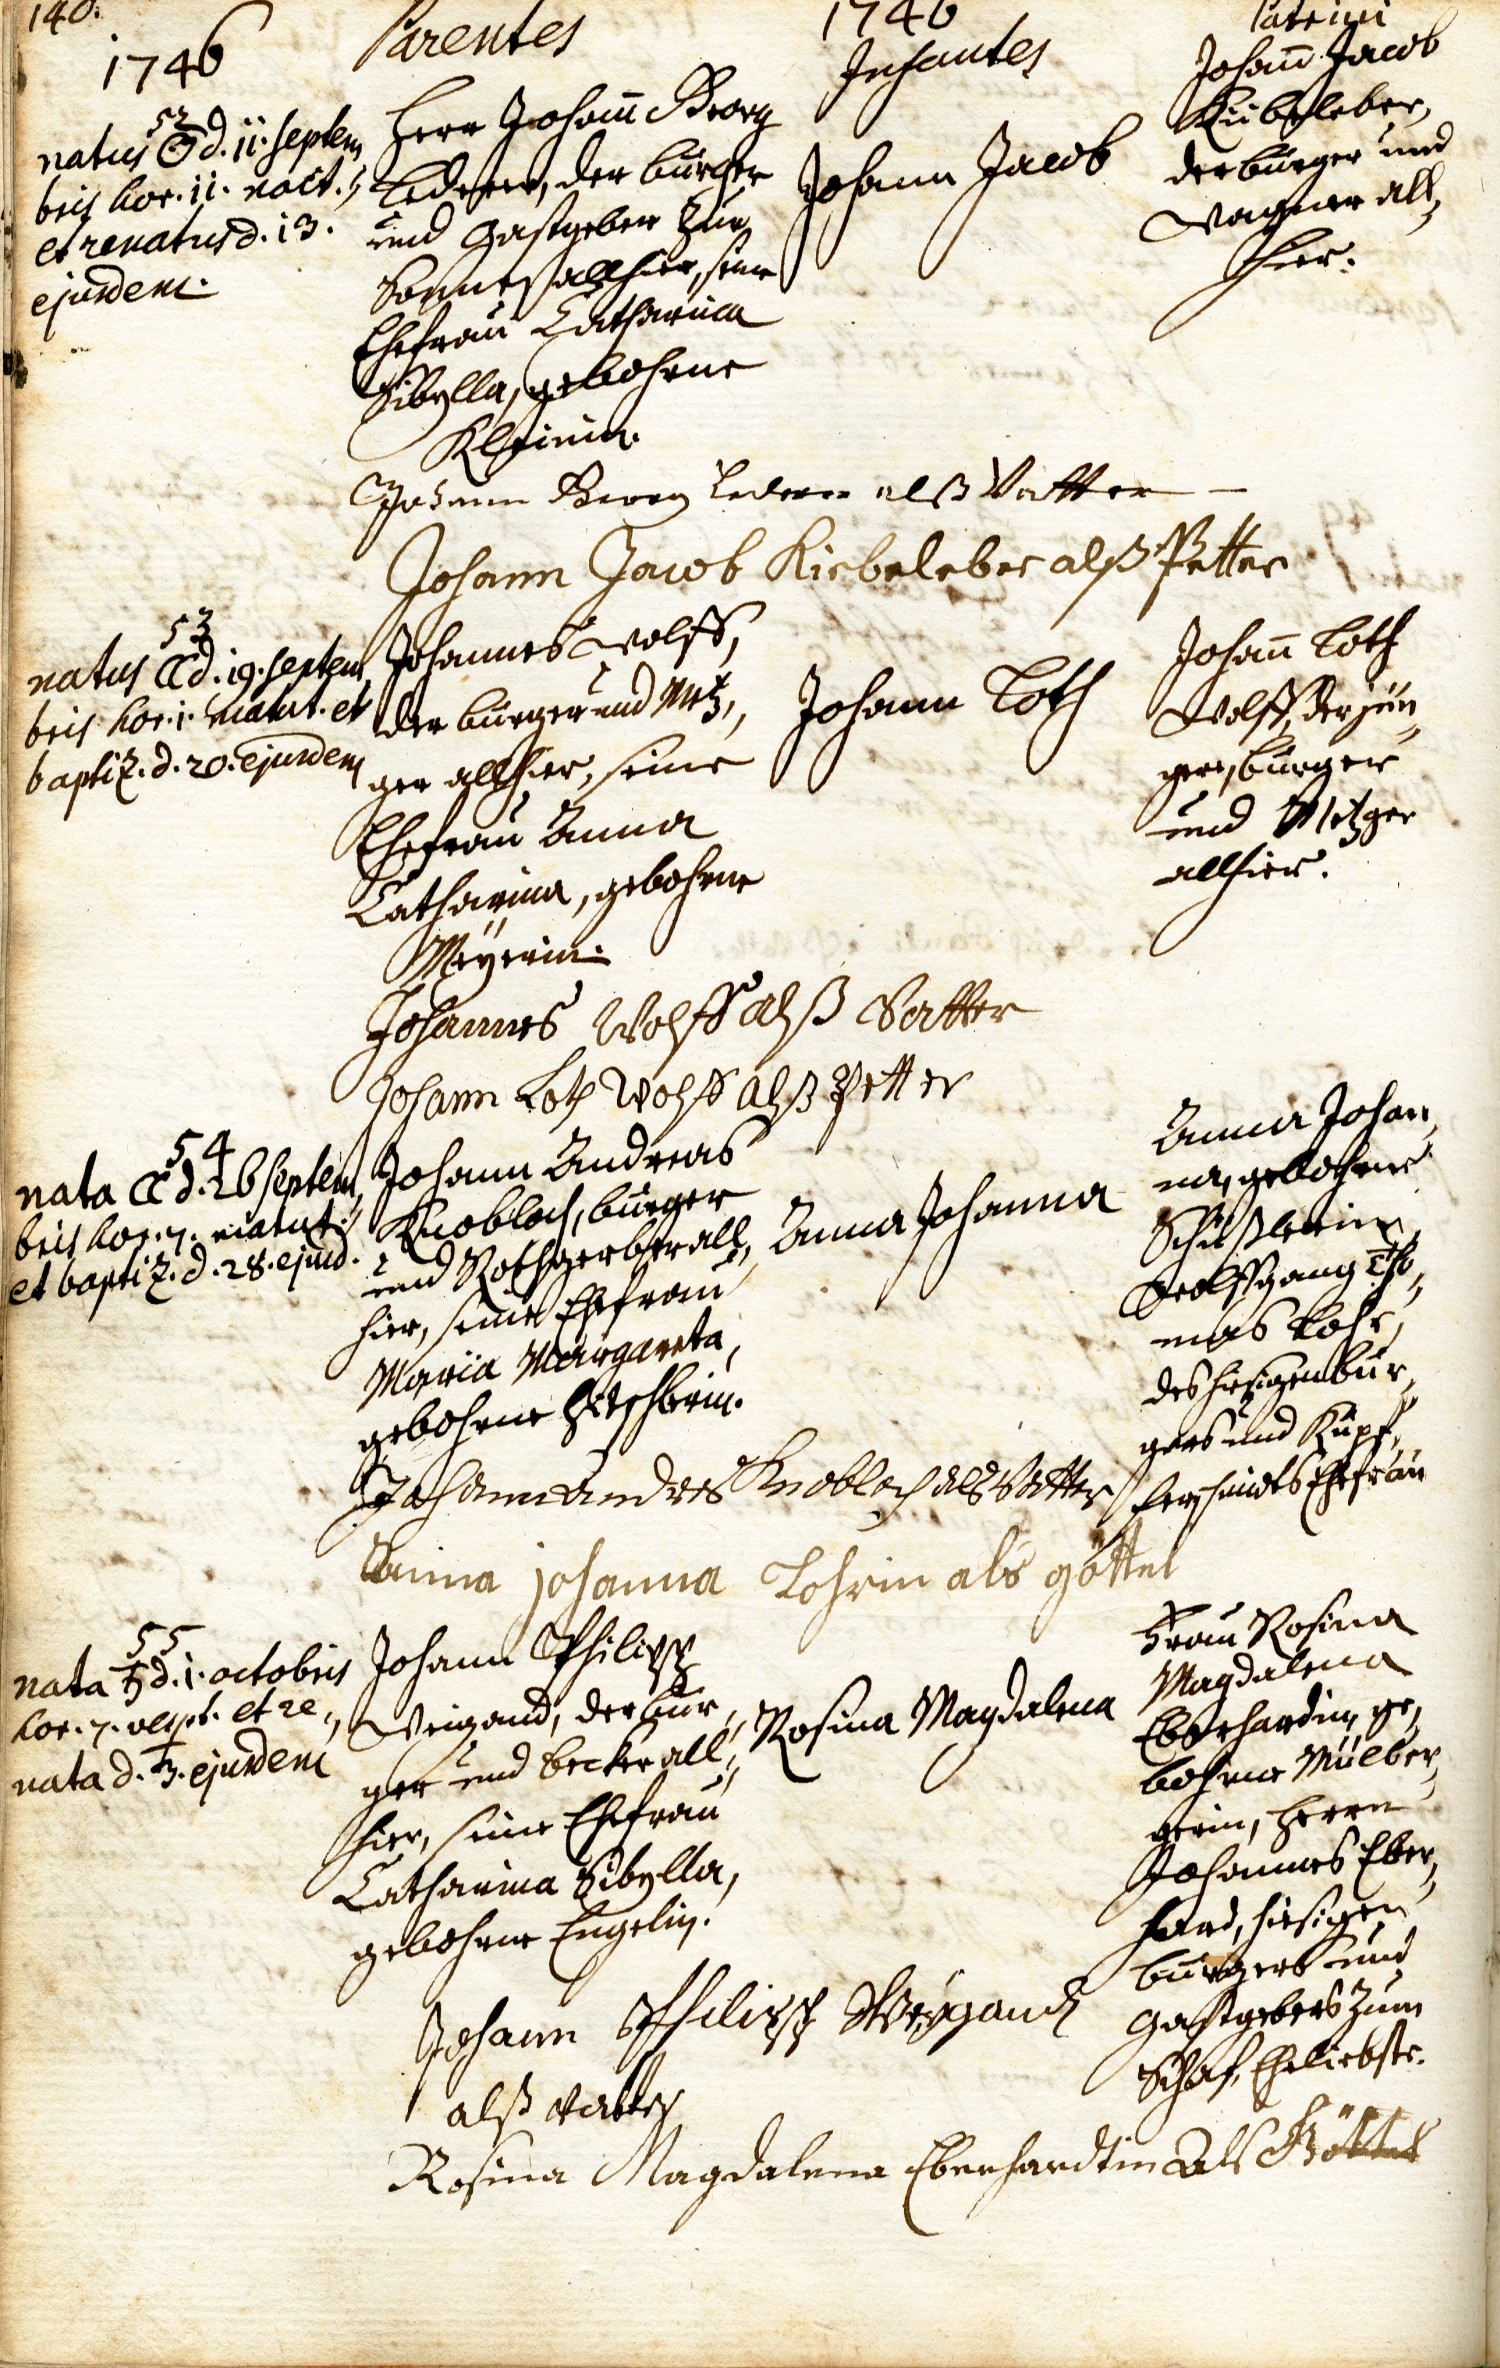 140.
1746
Parentes
1746
Infantes
Patrini
52
natus ☉ d. 11. Septem,
bris hor. 11. noct.
et renatus d. 13.
ejusdem.
Herr Johann Georg
Lederer, der burger
und Gastgeber zur
Sonnen allhier, seine
Ehefrau Catharina
Sibylla, gebohrne
Kleinin.
Johann Jacob
Johann Jacob
Kübeleber,
der burger und
Wagner all,
hier.
Johann Georg Lederer alß Vatter
Johann Jacob Kiebeleber alß Petter
53
natus ☾ d. 19. Septem,
bris hor. 1. matut. et
baptiz. d. 20. ejusdem
Johannes Wolff,
der burger und Metz,
ger allhier, seine
Ehefrau Anna
Catharina, gebohrne
Meÿerin.
Johann Loth
Johann Loth
Wolff, der jün,
gere, burger
und Metzger
allhier.
Johannes Wolff alß Vatter
Johann Loth Wolff alß Petter
54
nata ☾ d. 26 Septem,
bris hor. 7. matut.
et baptiz. d. 28. ejusd.
Johann Andreas
Knobloch, burger
und Rothgerber all,
hier, seine Ehefrau
Maria Margareta,
gebohrne
Anna Johanna
Anna Johan,
na, gebohrne
Schüßlerin,
Wolffgang Tho,
mas Lohr,
des hiesigen bur,
gers und Kupf,
ferschmidts Ehefrau
Johann Andres Knobloch als Vatter
anna johanna Lohrin als göttel
55
nata ♄ d. 1. octobris
hor. 7. vesp. et re,
nata d. 3. ejusdem
Johann Philipp
Weigand, der bur,
ger und becker all,
hier, seine Ehefrau
Catharina Sibylla,
gebohrne Engelin.
Rosina Magdalena
Frau Rosina
Magdalena
Eberhardin, ge,
bohrne Mülber,
gerin, Herrn
Johannes Eber,
hard, hiesigen
burgers und
Gastgebers zum
Schaf, Eheliebste.
Johann Philipp Weÿgand
alß vatter
Rosina Magdalena Eberhardtin Als Göttel